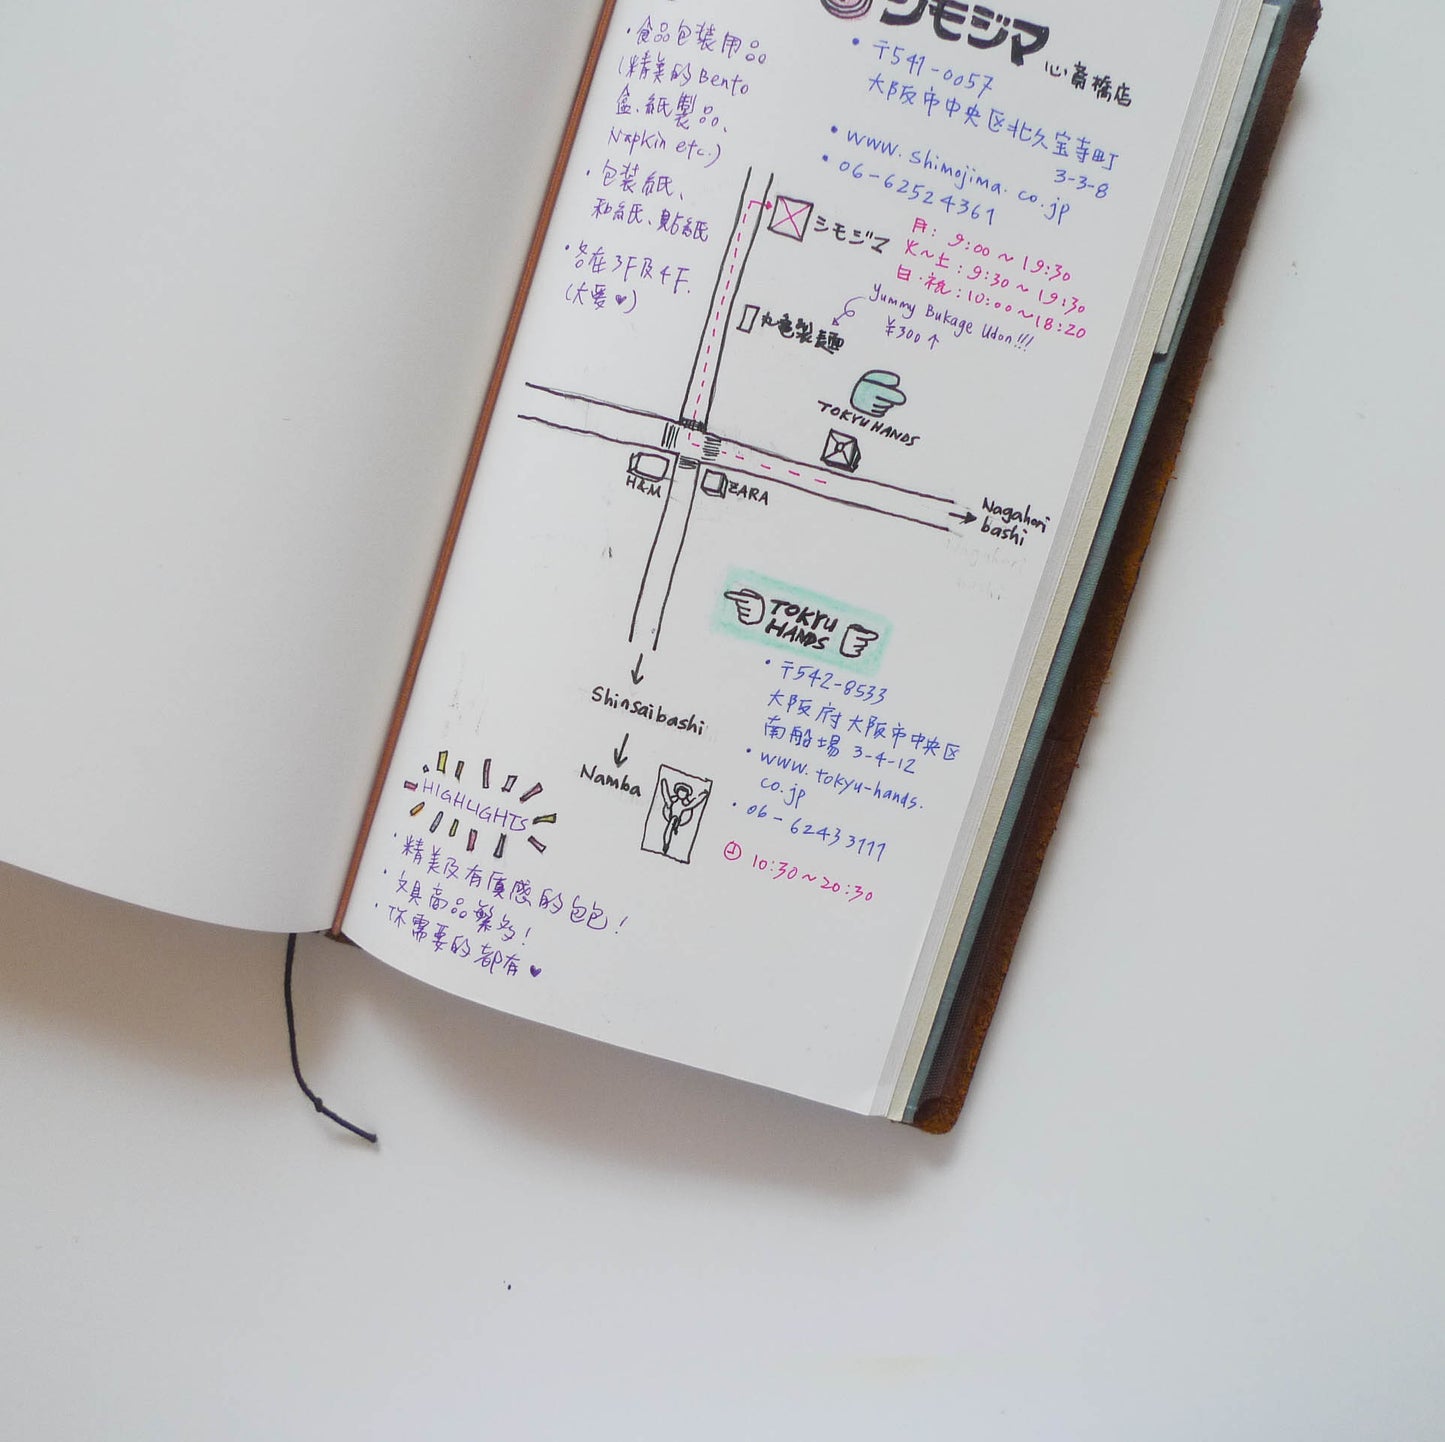 ・食品包装用品
(精美的 Bento
盒、紙製品、
Napkin etc.)
・包装紙、
和紙、貼紙
・各在 3F及4F.
(大愛♥)
シモジマ 心斎橋店
・〒541-0057
大阪市中央区北久宝寺町
3-3-8
・www.shimojima.co.jp
・06-62524361
月: 9:00~19:30
火~土: 9:30~19:30
日・祝: 10:00~18:20
シモジマ
Yummy Bukage Udon!!!
¥300↑
丸亀製麺
TOKYU HANDS
H&M
ZARA
→ Nagahori
bashi
Nagahori
bashi
↓
Shinsaibashi
↓
Namba
TOKYU
HANDS
・〒542-8533
大阪府大阪市中央区
南船場 3-4-12
・www.tokyu-hands.
co.jp
・06-62433111
10:30~20:30
HIGHLIGHTS
・精美及有質感的包包!
・文具商品繁多!
・你需要的都有♥